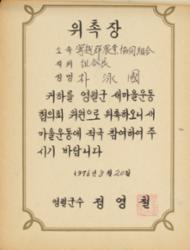 위촉장
소속 寧越郡農業協同組合
직위 組合長
성명 朴泳國
귀하를 영월군 새마을운동
협의회 위원으로 위촉하오니 새
마을운동에 적극 참여하여 주
시기 바랍니다
1976년 3월 20일
영월군수 정영철